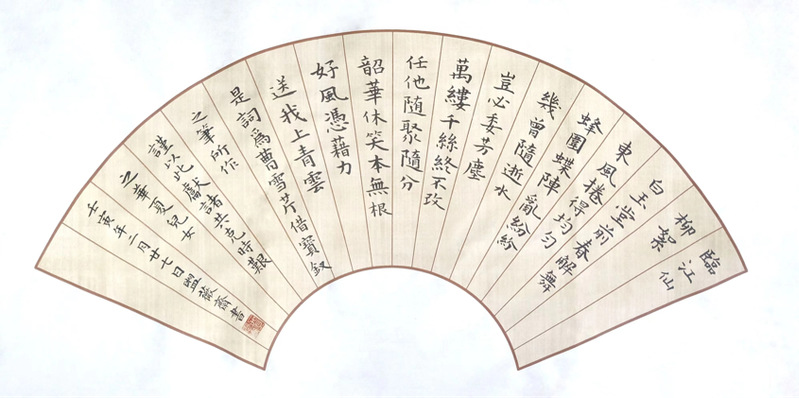 臨江仙
柳絮
白玉堂前春解舞
東風捲得均勻
蜂團蝶陣亂紛紛
幾曾隨逝水
豈必委芳塵
萬縷千絲終不改
任他隨聚隨分
韶華休笑本無根
好風憑藉力
送我上青雲
是詞爲曹雪芹借寶釵
之筆所作
謹以此獻諸共克時艱
之華夏兒女
壬寅年二月廿七日盥薇齋書